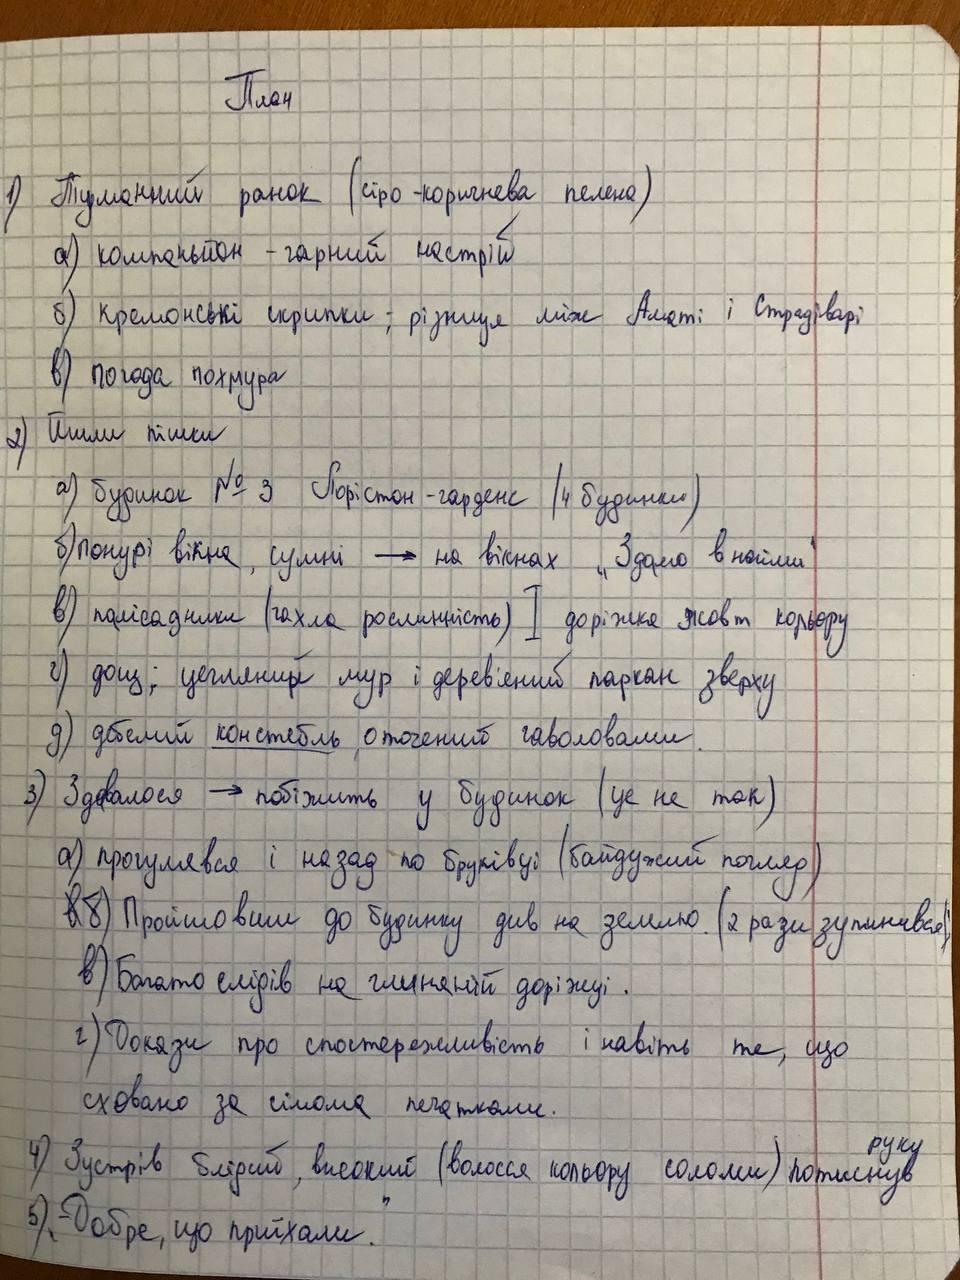 План
1) Туманний ранок (сіро-коричнева пелена)
а) компаньйон - гарний настрій
б) кремонські скрипки; різниця між Аматі і Страдіварі
в) погода похмура
2) Йшли пішки
а) будинок № 3 Лорістон-гарденс (4 будинки)
б) понурі вікна, сумні → на вікнах „Здамо в найми"
в) палісадники (чахла рослинність) I доріжка жовт кольору
г) дощ; цегляний мур і дерев'яний паркан зверху
д) дебелий констебль, оточений гаволовами.
3) Здавалося → побіжить у будинок (це не так)
а) прогулявся і назад по бруківці (байдужий погляд)
б) Пройшовши до будинку див на землю. (2 рази зупинився)
в) Багато слідів на глиняній доріжці.
г) Докази про спостережливість і навіть те, що
сховано за сімома печатками.
4) Зустрів блідий, високий (волосся кольору соломи) потиснув руку
5) „-Добре, що приїхали."